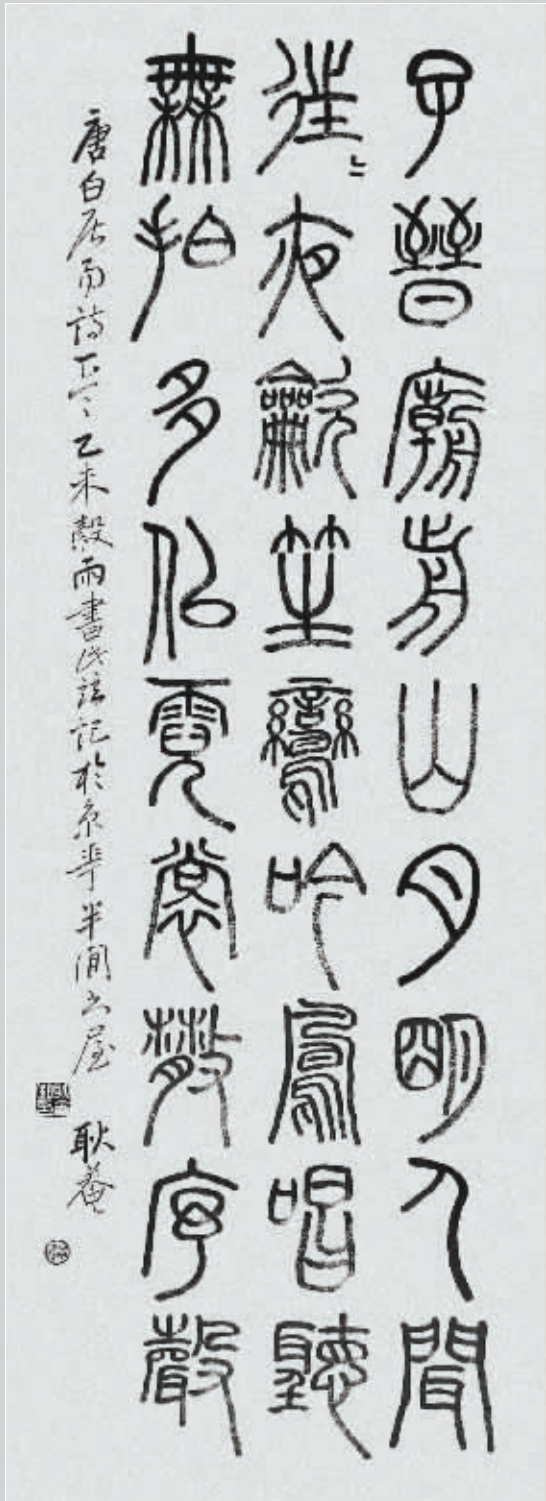 子晉廟前山月明人聞
往〻夜龡笙鸞吟鳳唱聽
無拍多佀霓裳散序聲
唐白居易詩乙未穀雨書記於京華半間屋
耿菴